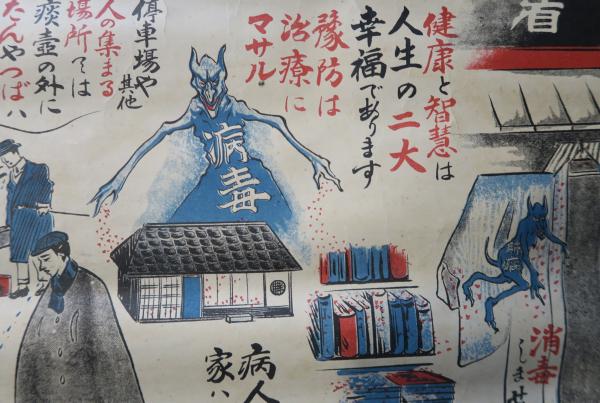 者
健康と智慧は
人生の二大
幸福であります
豫防は
治療に
マサル
停車場や
其他
人の集まる
場所では
痰壺の外に
たんやつばハ
病毒
病人
家ハ
消毒
しませ